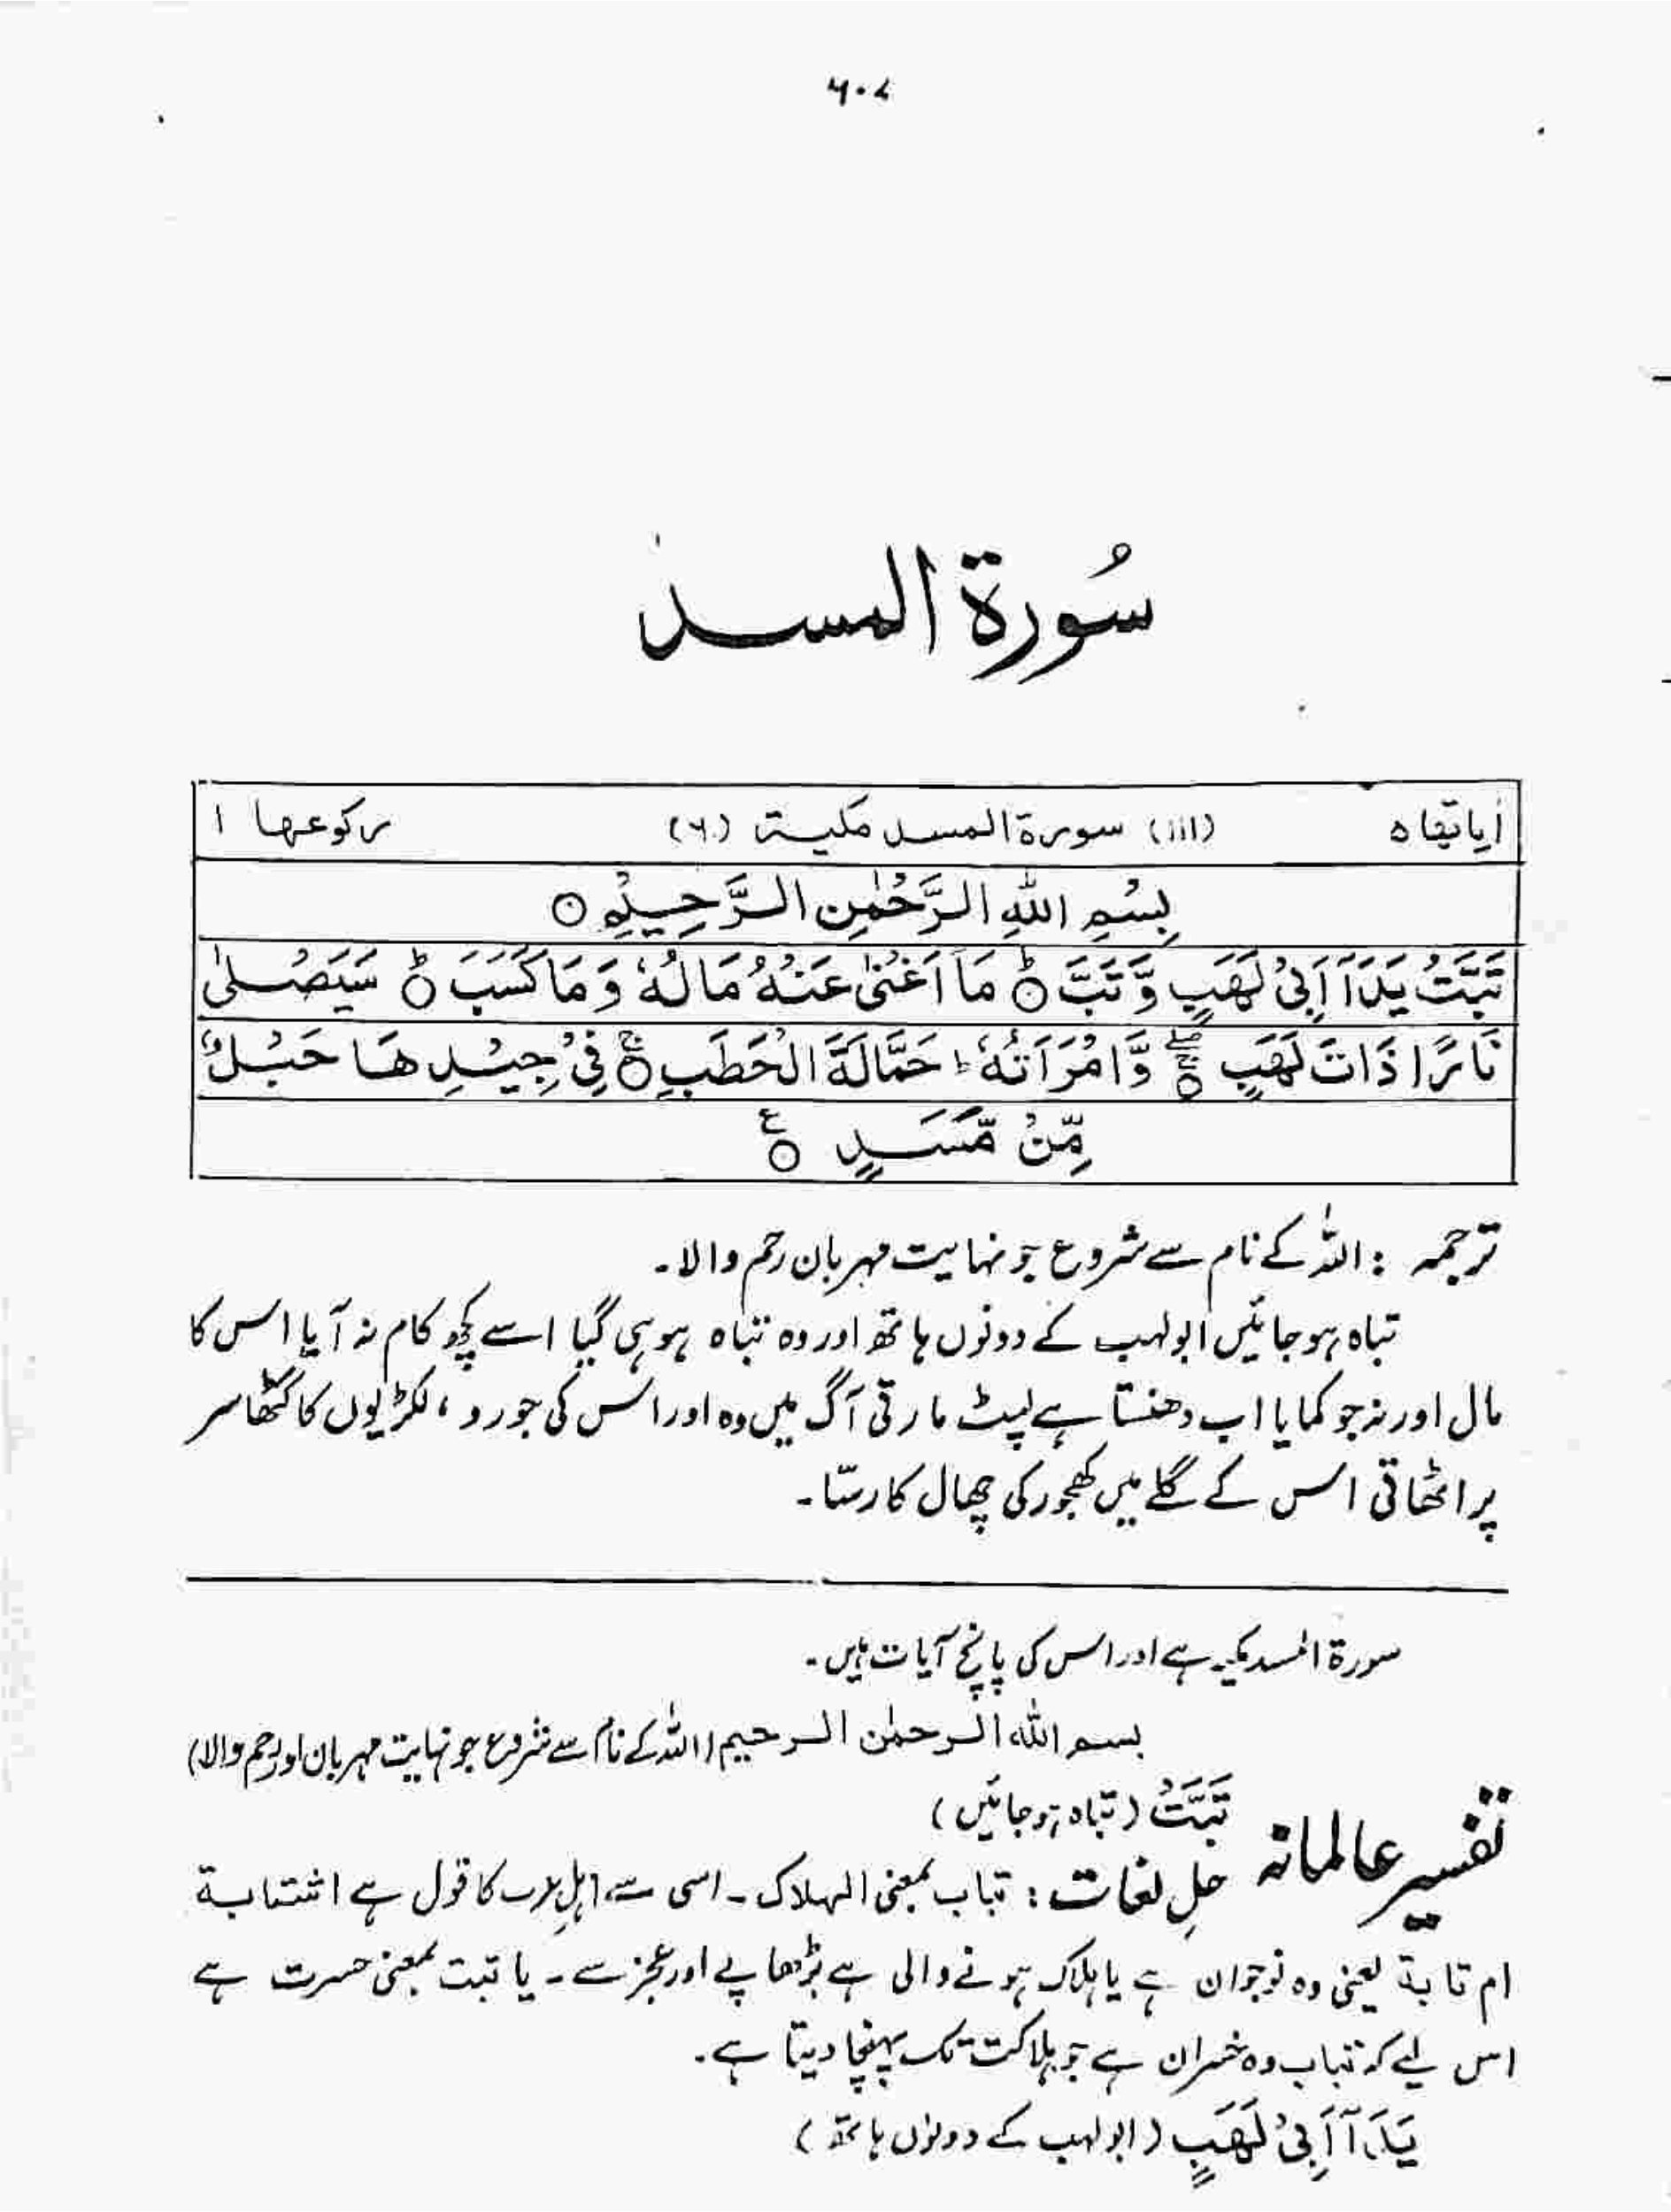 ۶۰۷
سُورۃ المسد
اٰیاتھا ۵ (۱۱۱) سورۃ المسد مکیۃ (۶) رکوعھا ۱
بِسْمِ اللّٰهِ الرَّحْمٰنِ الرَّحِيْمِ ○
تَبَّتْ يَدَآ اَبِيْ لَهَبٍ وَّتَبَّ ○ؕ مَآ اَغْنٰى عَنْهُ مَالُهٗ وَمَا كَسَبَ ○ؕ سَيَصْلٰى
نَارًا ذَاتَ لَهَبٍ ○ۚۖ وَّامْرَاَتُهٗ ؕ حَمَّالَةَ الْحَطَبِ ○ۚ فِيْ جِيْدِهَا حَبْلٌ
مِّنْ مَّسَدٍ ○ع
ترجمہ : اللہ کے نام سے شروع جو نہایت مہربان رحم والا۔
تباہ ہو جائیں ابولہب کے دونوں ہاتھ اور وہ تباہ ہو ہی گیا اسے کچھ کام نہ آیا اس کا
مال اور نہ جو کمایا اب دھنستا ہے لپٹ مارتی آگ میں وہ اور اس کی جورو ، لکڑیوں کا گٹھا سر
پر اٹھاتی اس کے گلے میں کھجور کی چھال کا رسّا۔
سورۃ المسد مکیہ ہے اور اس کی پانچ آیات ہیں۔
بسم اللہ الرحمٰن الرحیم (اللہ کے نام سے شروع جو نہایت مہربان اور رحم والا)
تَبَّتْ (تباہ ہو جائیں)
تفسیر عالمانہ حلِ لغات : تباب بمعنی الہلاک ۔ اسی سے اہلِ عرب کا قول ہے اشتابۃ
ام تابۃ یعنی وہ نوجوان ہے یا ہلاک ہونے والی ہے بڑھاپے اور عجز سے ۔ یا تبت بمعنی خسرت ہے
اس لیے کہ تباب وہ خسران ہے جو ہلاکت تک پہنچا دیتا ہے۔
يَدَآ اَبِيْ لَهَبٍ (ابولہب کے دونوں ہاتھ)